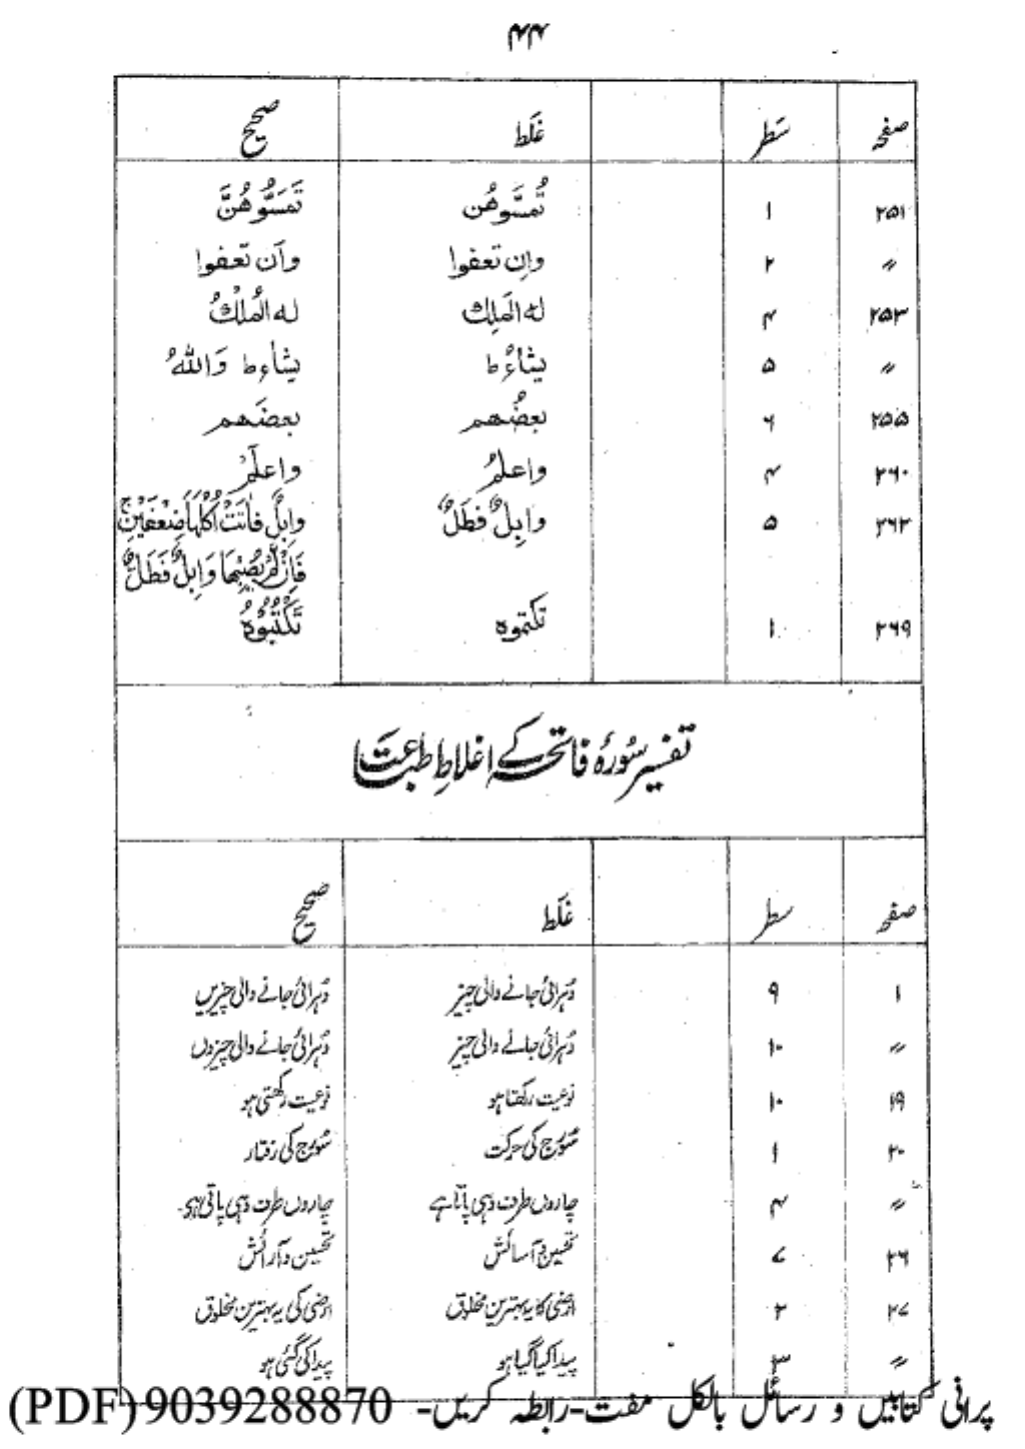 ۴۴
صفحہ سَطر غَلَط صحیح
۲۵۱ ۱ تُمسَّوهُن تَمَسُّوهُنَّ
〃 ۲ وإن تعفوا وأن تعفوا
۲۵۳ ۴ له المَلِك له المُلْكُ
〃 ۵ يشاءُ ط يشاء ط وَاللهُ
۲۵۵ ۶ بعضُهم بعضَهم
۲۶۰ ۴ واعلمُ واعلَمْ
۲۶۳ ۵ وابِلٌ فطَلٌّ وابِلٌ فَاٰتَتْ اُكُلَهَا ضِعْفَيْنِ ۚ
فَاِنْ لَّمْ يُصِبْهَا وَابِلٌ فَطَلٌّ
۲۶۹ ۱ تكتموه تَكْتُبُوْهُ
تفسیر سُورۂ فاتحہ کے اغلاطِ طباعت
صفحہ سطر غَلَط صحیح
۱ ۹ دُہرائی جانے والی چیز دُہرائی جانے والی چیزیں
〃 ۱۰ دُہرائی جانے والی چیز دُہرائی جانے والی چیزوں
۱۹ ۱۰ نوعیت رکھتا ہو نوعیت رکھتی ہو
۲۰ ۱ سُورج کی حرکت سُورج کی رفتار
〃 ۴ چاروں طرف وہی پاتا ہے چاروں طرف وہی پاتی ہو۔
۲۶ ۷ تحسین و آسائش تحسین و آرائش
۲۷ ۲ ارضی کا یہ بہترین مخلوق ارضی کی یہ بہترین مخلوق
〃 ۳ پیدا کیا گیا ہو پیدا کی گئی ہو
پرانی کتابیں و رسائل بالکل مفت-رابطہ کریں- 9039288870 (PDF)